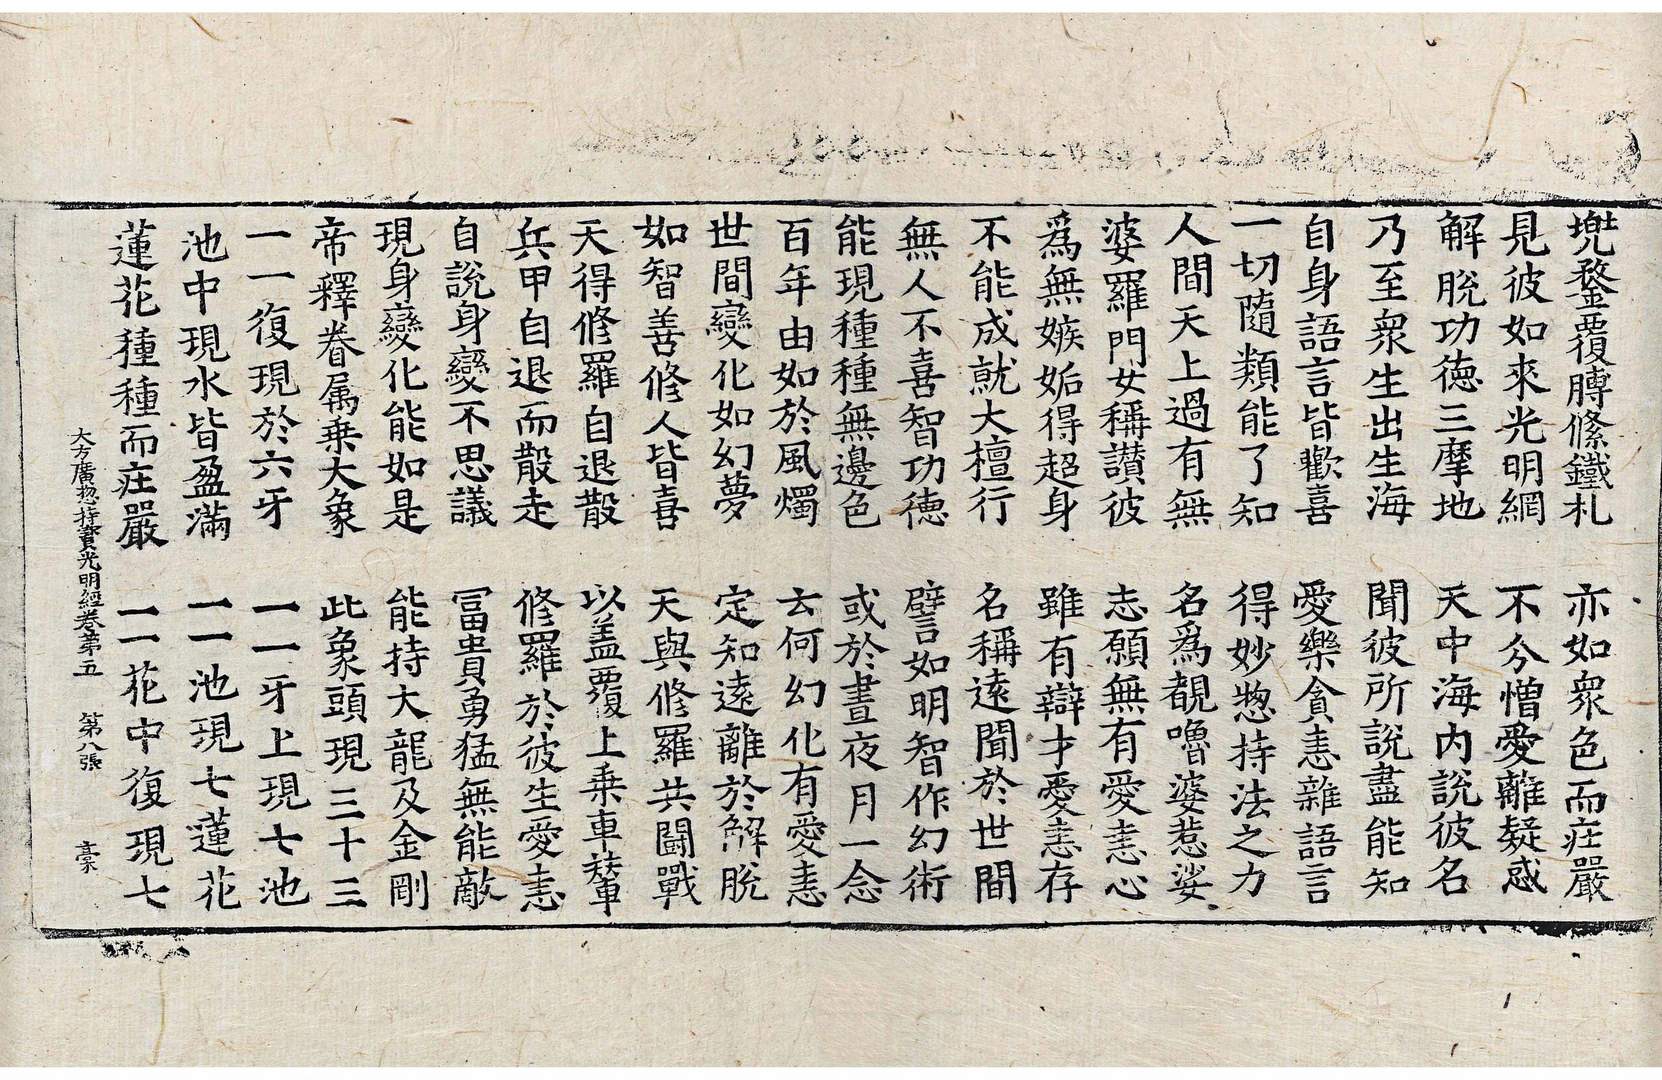 兠鍪覆膊絛鐵札 亦如衆色而庄嚴
見彼如來光明網 不分憎愛離疑惑
解脫功徳三摩地 天中海内說彼名
乃至衆生出生海 聞彼所說盡能知
自身語言皆歡喜 愛樂貪恚離語言
一切隨類能了知 得妙惣持法之力
人間天上過有無 名爲覩嚕婆惹娑
婆羅門女稱讃彼 志願無有愛恚心
爲無嫉妬得超身 雖有辯才愛恚存
不能成就大檀行 名稱遠聞於世間
無人不喜智功徳 譬如明智作幻術
能現種種無邊色 或於晝夜月一念
百年由如於風燭 去何幻化有愛恚
世間變化如幻夢 定知遠離於解脫
如智善修人皆喜 天與修羅共鬪戰
天得修羅自退散 以盖覆上乗車輦
兵甲自退而散走 修羅於彼生愛恚
自說身變不思議 冨貴勇猛無能敵
現身變化能如是 能持大龍及金剛
帝釋眷属乗大象 此象頭現三十三
一一復現於六牙 一一牙上現七池
池中現水皆盈滿 一一池現七蓮花
蓮花種種而庄嚴 一一花中復現七
大方廣惣持寶光明經卷第五 第八張 稾